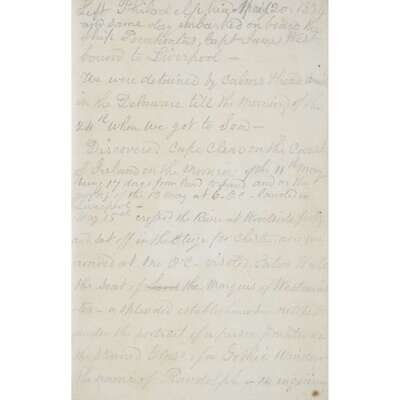 Left Philadelphia April 20, 18
and same day embarked on board the
ship Pocahontas, Capt James West
bound to Liverpool —
We were detained by calms & head winds
in the Delaware till the morning of the
24th when we got to Sea —
Discovered Cape Clear on the Coast
of Ireland on the morning of the 11th May
being 17 days from land to land and on the
night of the 13 May at 6 O'C — landed in
Liverpool —
May 15th crossed the River at Woodside ferry
and set off in the Stage for Chester
arrived at One O'C — visited Eaton Hall
the seat of Lord the Marquis of Westmin
ter — a splendid establishment — noticed
under the portrait of a person painted on
the stained Glass of a Gothic Window
the name of Randolph — on enquiring